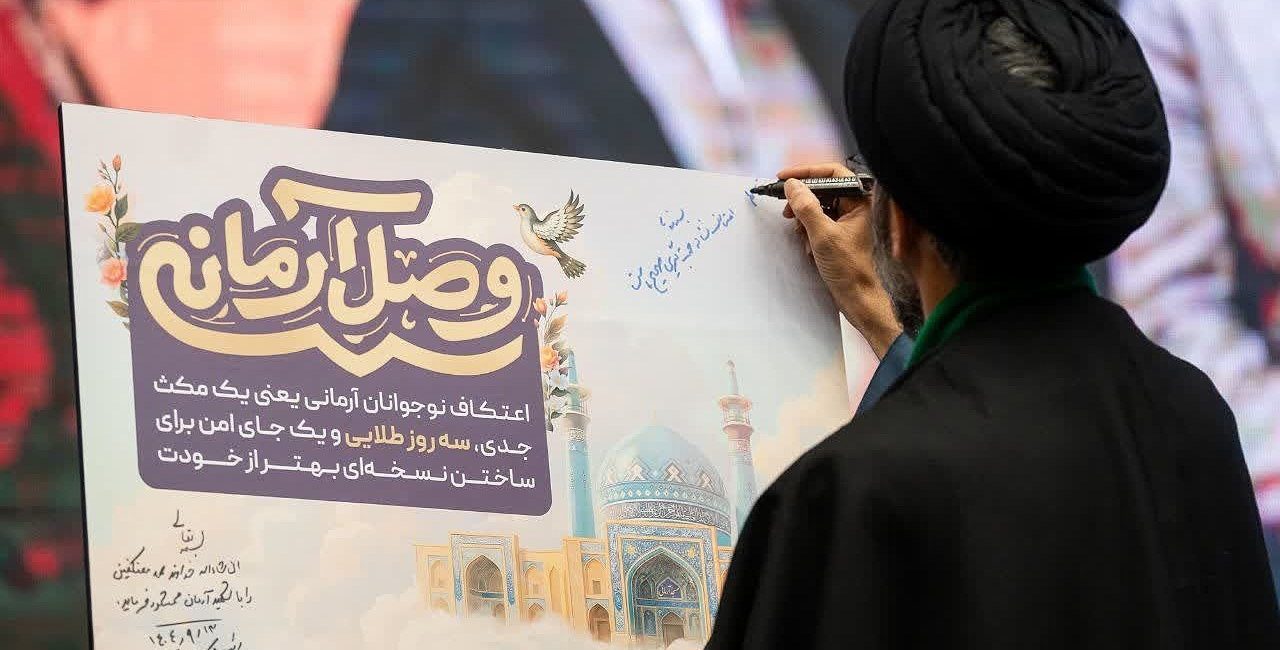 وصل آرمانے
اعتکاف نوجوانان آرمانی یعنی یک مکث
جدی، سه روز طلایی و یک جای امن برای
ساختن نسخه‌ای بهتر از خودت
بسمه تعالی
ان شاءالله خداوند همه معتکفین
را با شهید آرمان محشور فرماید.
۱۴۰۴/۹/۱۳